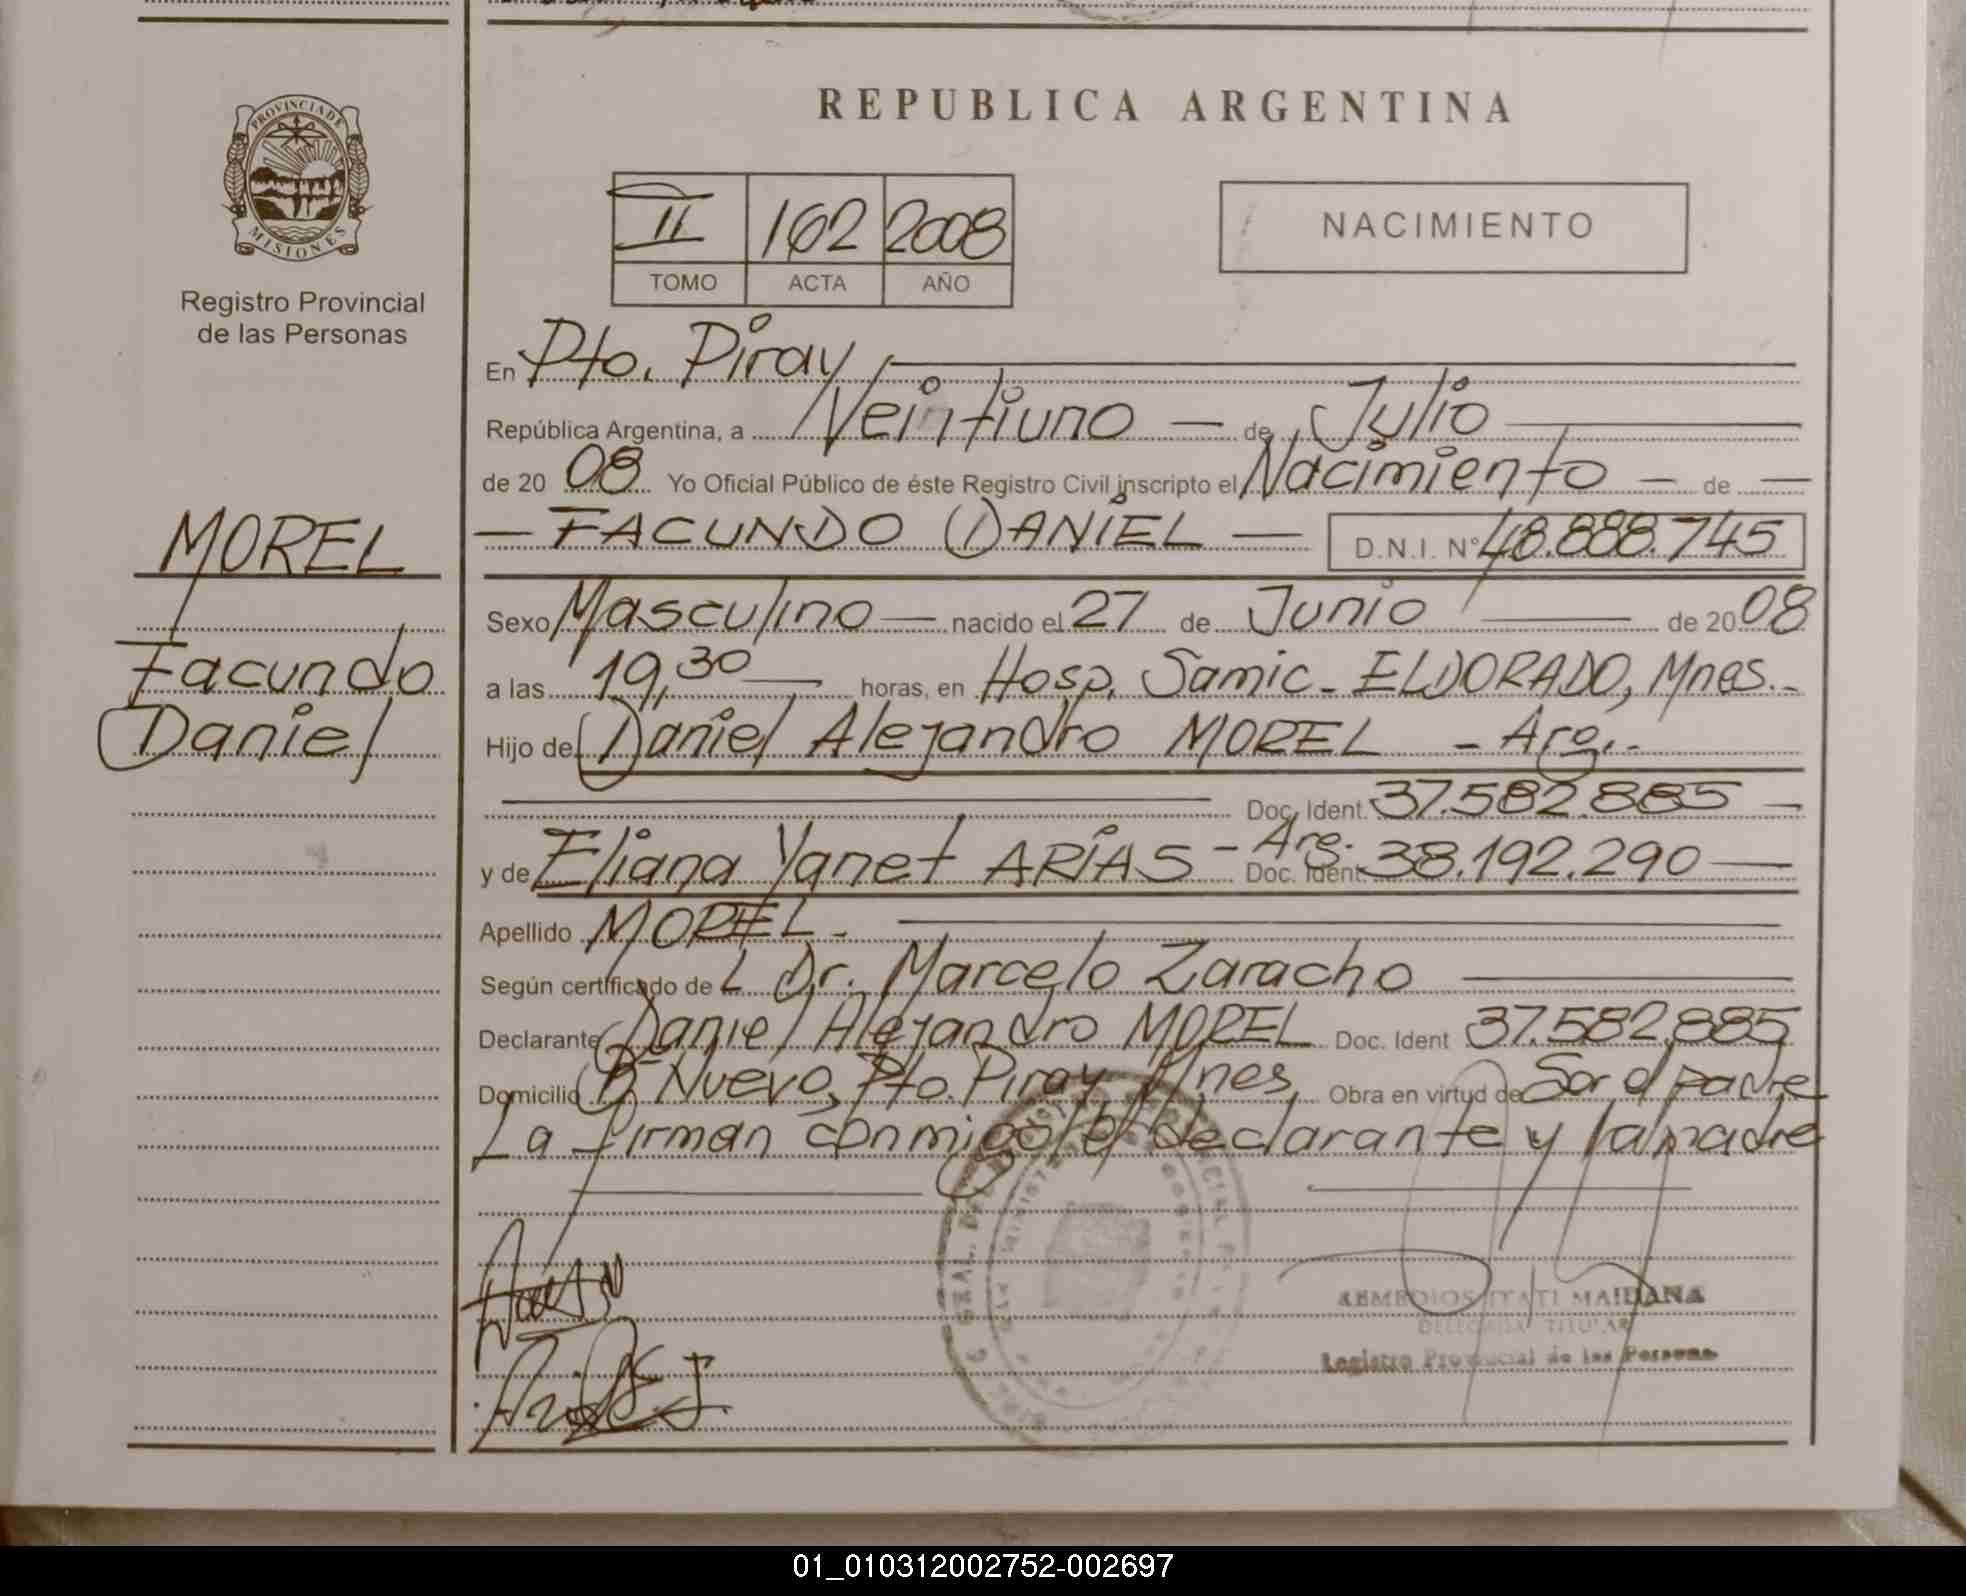 REPUBLICA ARGENTINA
PROVINCIA DE
MISIONES
Registro Provincial
de las Personas
II 162 2008
TOMO ACTA AÑO
NACIMIENTO
En Pto. Piray
República Argentina, a Veintiuno - de Julio
de 20 08 Yo Oficial Público de éste Registro Civil inscripto el Nacimiento - de -
- FACUNDO DANIEL - D.N.I. Nº 48.888.745
MOREL
Facundo
Daniel
Sexo Masculino - nacido el 27 de Junio de 20 08
a las 19,30 horas, en Hosp. Samic - ELDORADO, Mnes.-
Hijo de Daniel Alejandro MOREL - Arg.-
Doc. Ident. 37.582.885 -
y de Eliana Yanet ARIAS - Arg. Doc. Ident. 38.192.290
Apellido MOREL -
Según certificado de L Dr. Marcelo Zaracho
Declarante Daniel Alejandro MOREL Doc. Ident 37.582.885
Domicilio Bº Nuevo, Pto. Piray Mnes, Obra en virtud de Sor el padre
La firman conmigo el declarante y la madre
REMEDIOS ITATI MAIDANA
DELEGADA TITULAR
Registro Provincial de las Personas
01_010312002752-002697